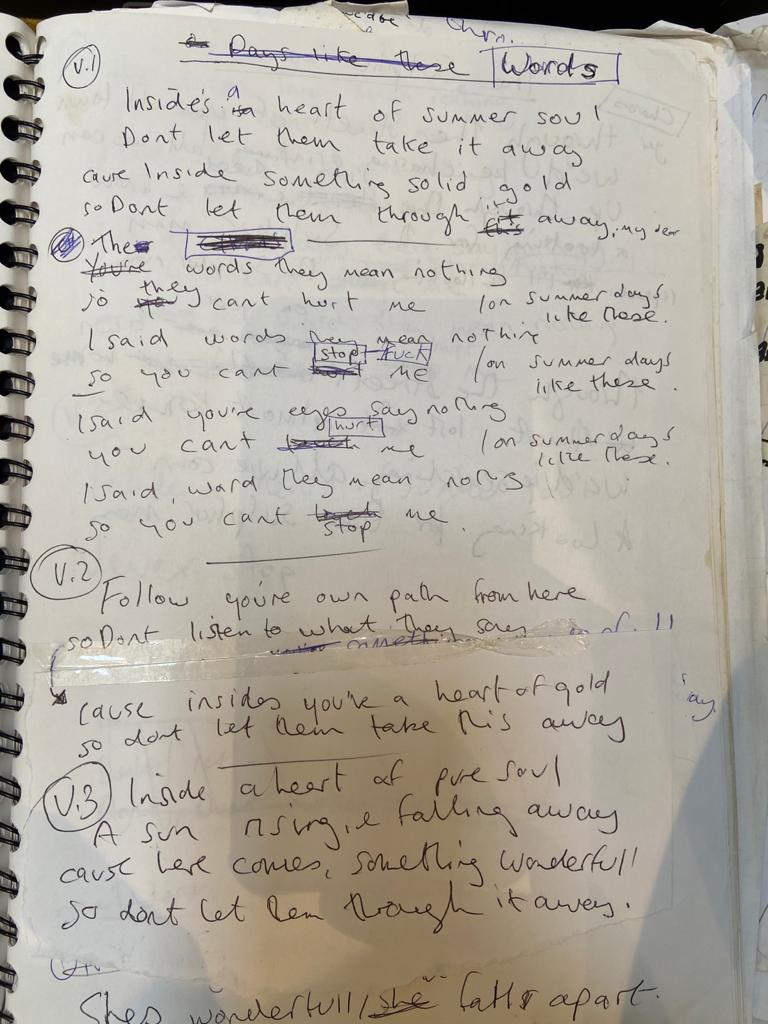 Days like these Words
V.1
Inside's a heart of summer soul
Dont let them take it away
cause Inside something solid gold
so Dont let them through it away, my dear
The
You're words they mean nothing
so they cant hurt me / on summer days
like these.
I said words they mean nothing
stop fuck
so you cant hurt me / on summer days
like these.
I said you're eyes say nothing
hurt
you cant me / on summer days
like these.
I said, word they mean nothing
so you cant me.
stop
V.2
Follow you're own path from here
so Dont listen to what they say
cause insides you're a heart of gold
so dont let them take this away
V.3
Inside a heart of pure soul
A sun rising, & falling away
cause here comes, something wonderfull
so dont let them through it away.
Shes wonderfull / she falls apart.